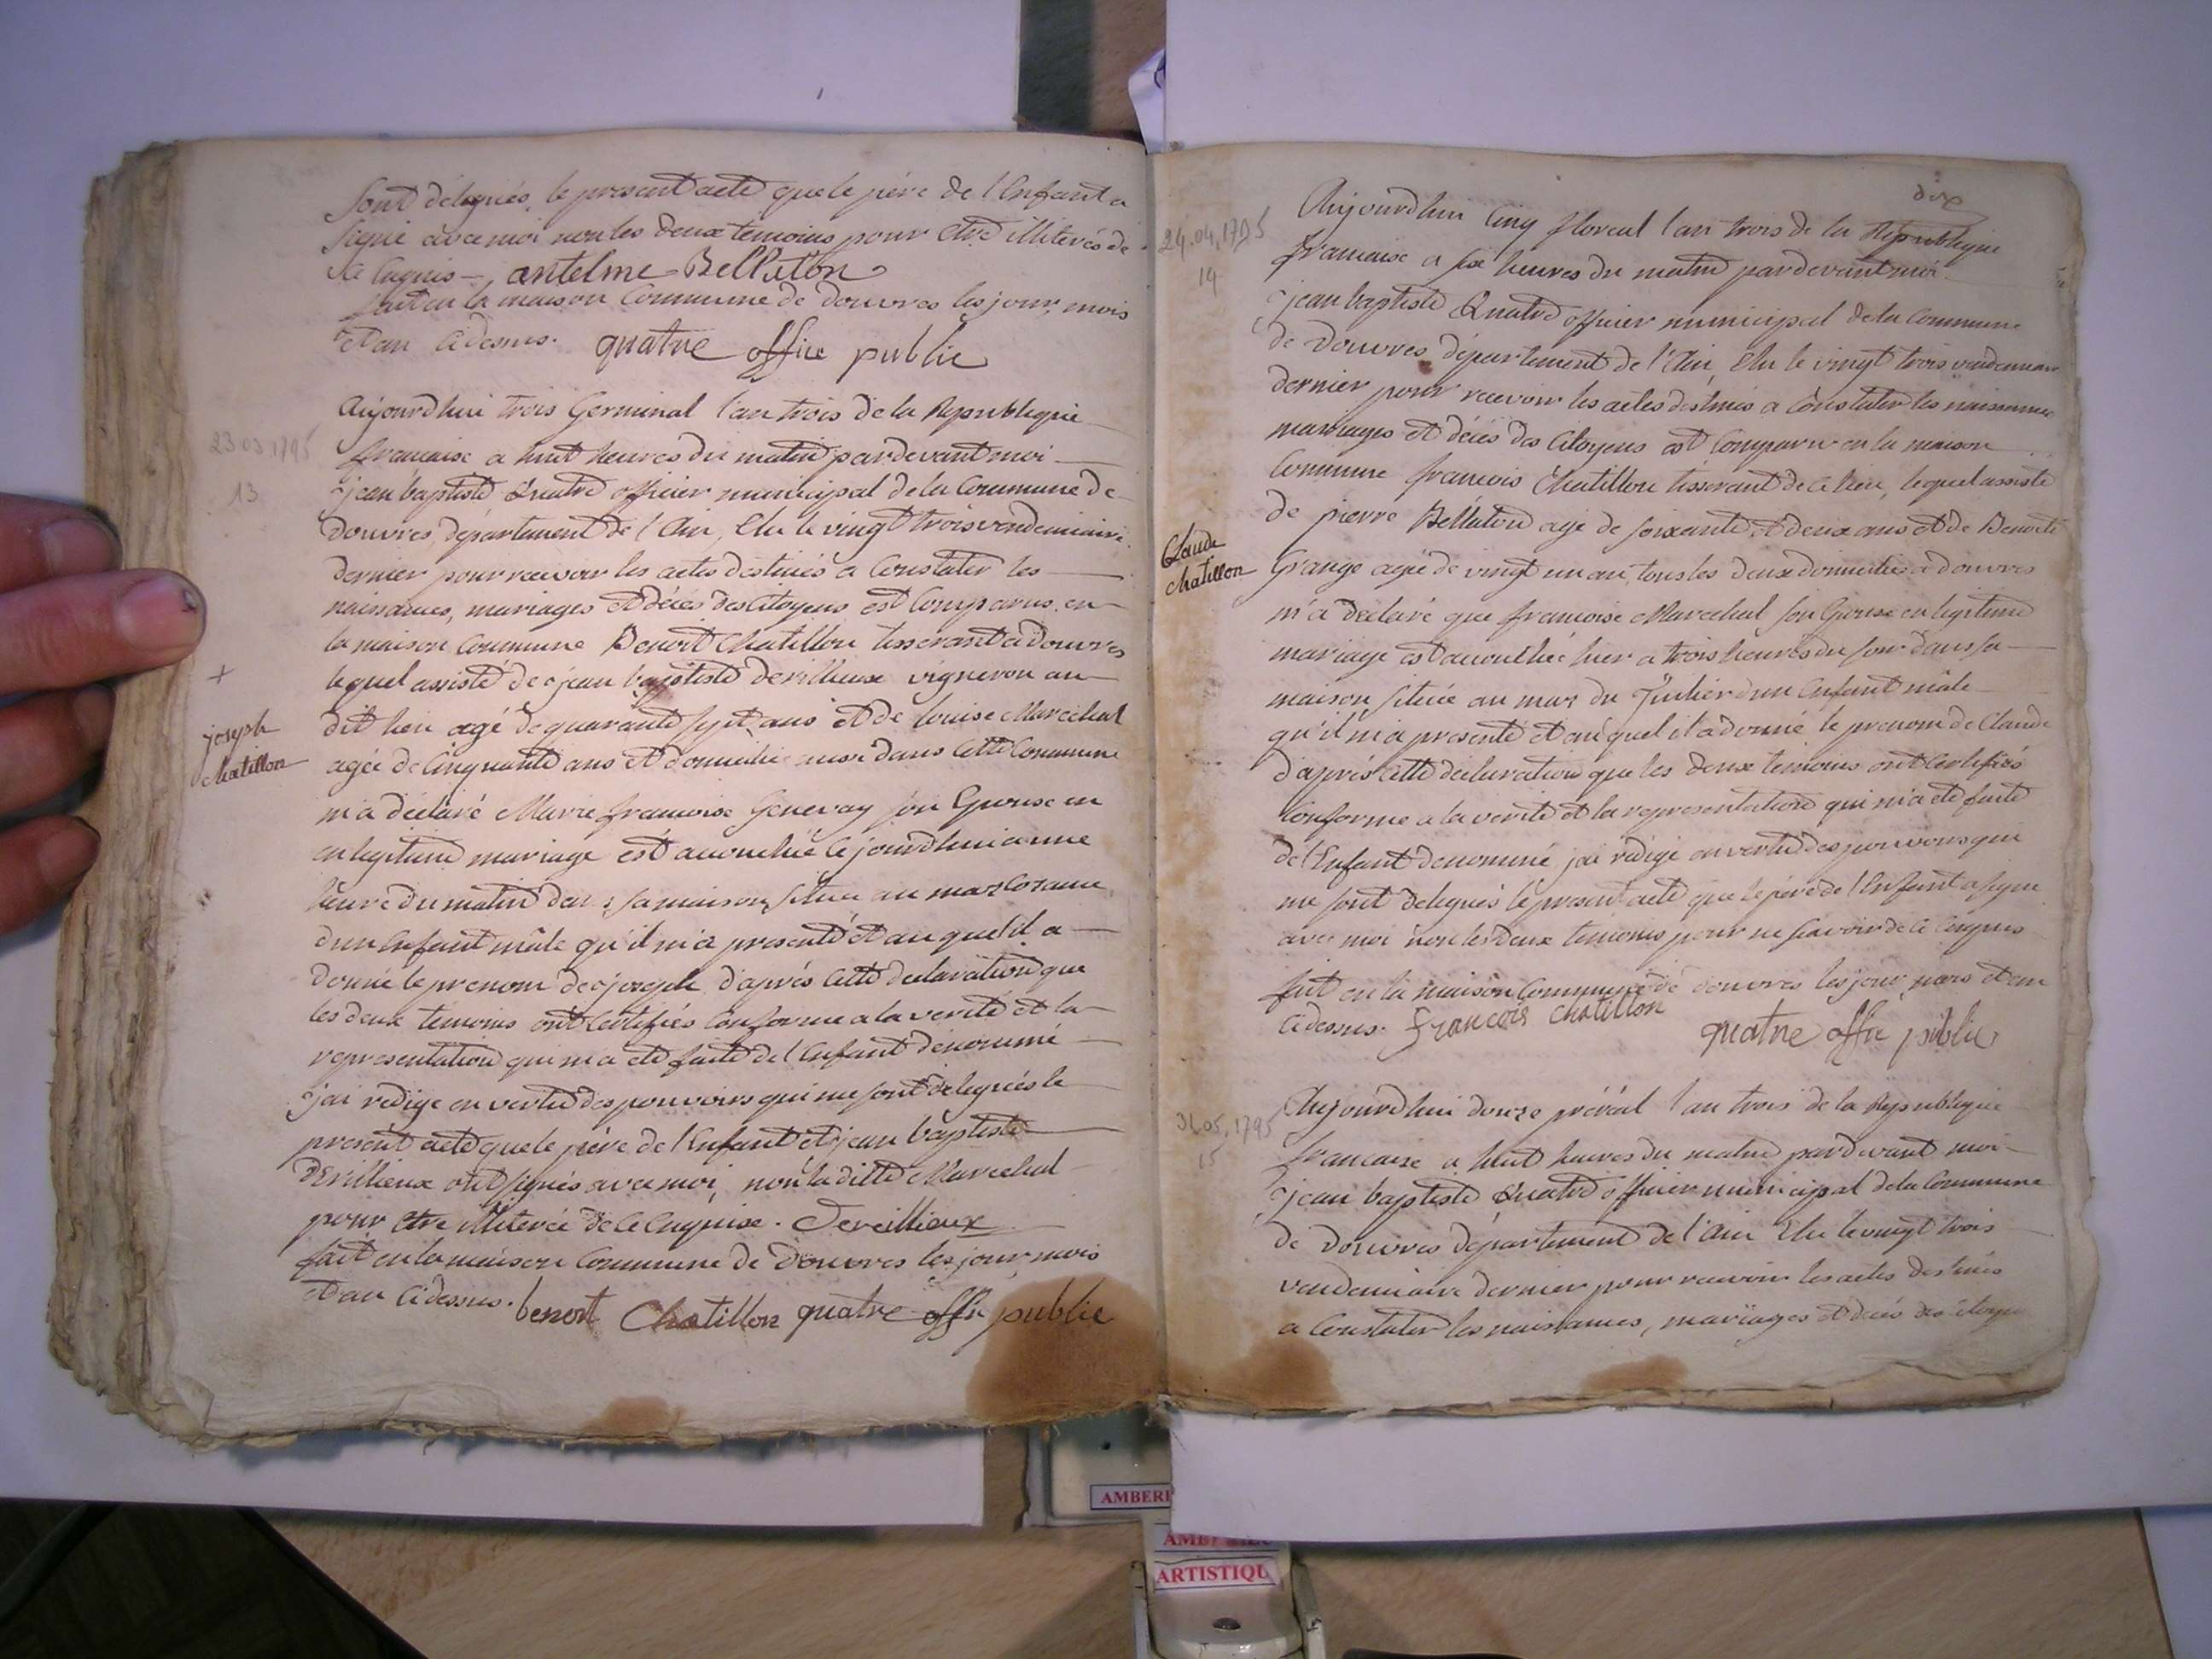 sont délégués, le present acte que le père de l'Enfant a
signé avec moi non les deux temoins pour etre illiterés de
ce enquis – antelme Bellaton
fait en la maison Commune de douvres les jour, mois
et an cidessus. quatre office public
23.03.1795
13
Aujourdhui trois Germinal l'an trois de la Republique
francaise a huit heures du matin pardevant moi
jean baptiste Quatre officier municipal de la Commune de
Douvres, département de l'Ain, Elu le vingt trois vendemiaire
dernier pour recevoir les actes destinés a Constater les
naissances, mariages et décès des Citoyens est Comparus en
la maison Commune Benoit Chatillon tisserant a Douvres
lequel assisté de jean baptiste Derillieux vigneron au
+
joseph
chatillon
dit lieu agé de quarante sept ans et de louise Marechal
agée de Cinquante ans et domiciliée aussi dans cette Commune
m'a déclaré Marie francoise Genevay son Epouse en
en legitime mariage est accouchée ce jourdhui a une
heure du matin dans sa maison située au mas
d'un Enfant mâle qu'il m'a presenté et au quel il a
donné le prenom de joseph d'après cette declaration que
les deux temoins ont Certifiés Conforme a la verité et la
representation qui m'a eté faite de l'Enfant dénommé
j'ai redigé en vertu des pouvoirs qui me sont délegués le
present acte que le père de l'Enfant et jean baptiste
Derillieux ont signés avec moi, non la ditte Marechal
pour etre illiterée de ce Enquise. Dereillieux
fait en la maison Commune de Douvres les jour, mois
et an cidessus. benoit Chatillon quatre offie public
dix
24.04.1795
14
Aujourdhui Cinq floreal l'an trois de la Republique
francaise a six heures du matin pardevant moi
jean baptiste Quatre officier municipal de la Commune
de Douvres, département de l'Ain, Elu le vingt trois vendemiaire
dernier pour recevoir les actes destinés a Constater les naissances
mariages et décès des Citoyens est Comparu en la maison
Commune francois Chatillon tisserant de ce lieu, lequel assisté
de pierre Bellaton agé de soixante et deux ans et de Benoite
Claude
chatillon
Grange agée de vingt un an, tous les deux domiciliés a douvres
m'a déclaré que francoise Marechal son Epouse en legitime
mariage est accouchée hier a trois heures du soir dans sa
maison située au mas du d'un Enfant mâle
qu'il m'a presenté et auquel il a donné le prenom de Claude
d'après cette declaration que les deux temoins ont Certifiés
Conforme a la verité et la representation qui m'a eté faite
de l'Enfant dénommé j'ai redigé en vertu des pouvoirs qui
me sont delegués le present acte que le père de l'Enfant a signé
avec moi non les deux temoins pour ne scavoir de ce Enquis
fait en la maison Commune de douvres les jour, mois et an
cidessus. Francois Chatillon quatre offie public
31.05.1795
15
Aujourdhui douze preréal l'an trois de la Republique
francaise a huit heures du matin pardevant moi
jean baptiste Quatre officier municipal de la Commune
de Douvres département de l'Ain Elu le vingt trois
vendemiaire dernier pour recevoir les actes destinés
a Constater les naissances, mariages et décès des citoyen
AMBERI
ARTISTIQU